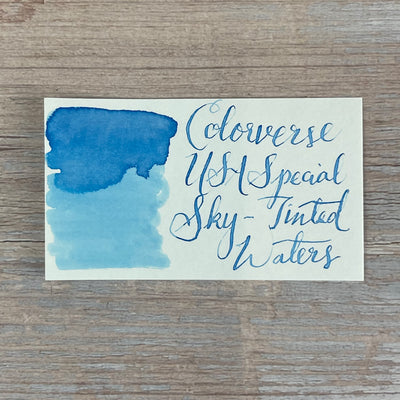 Colorverse
USA Special
Sky-Tinted
Waters